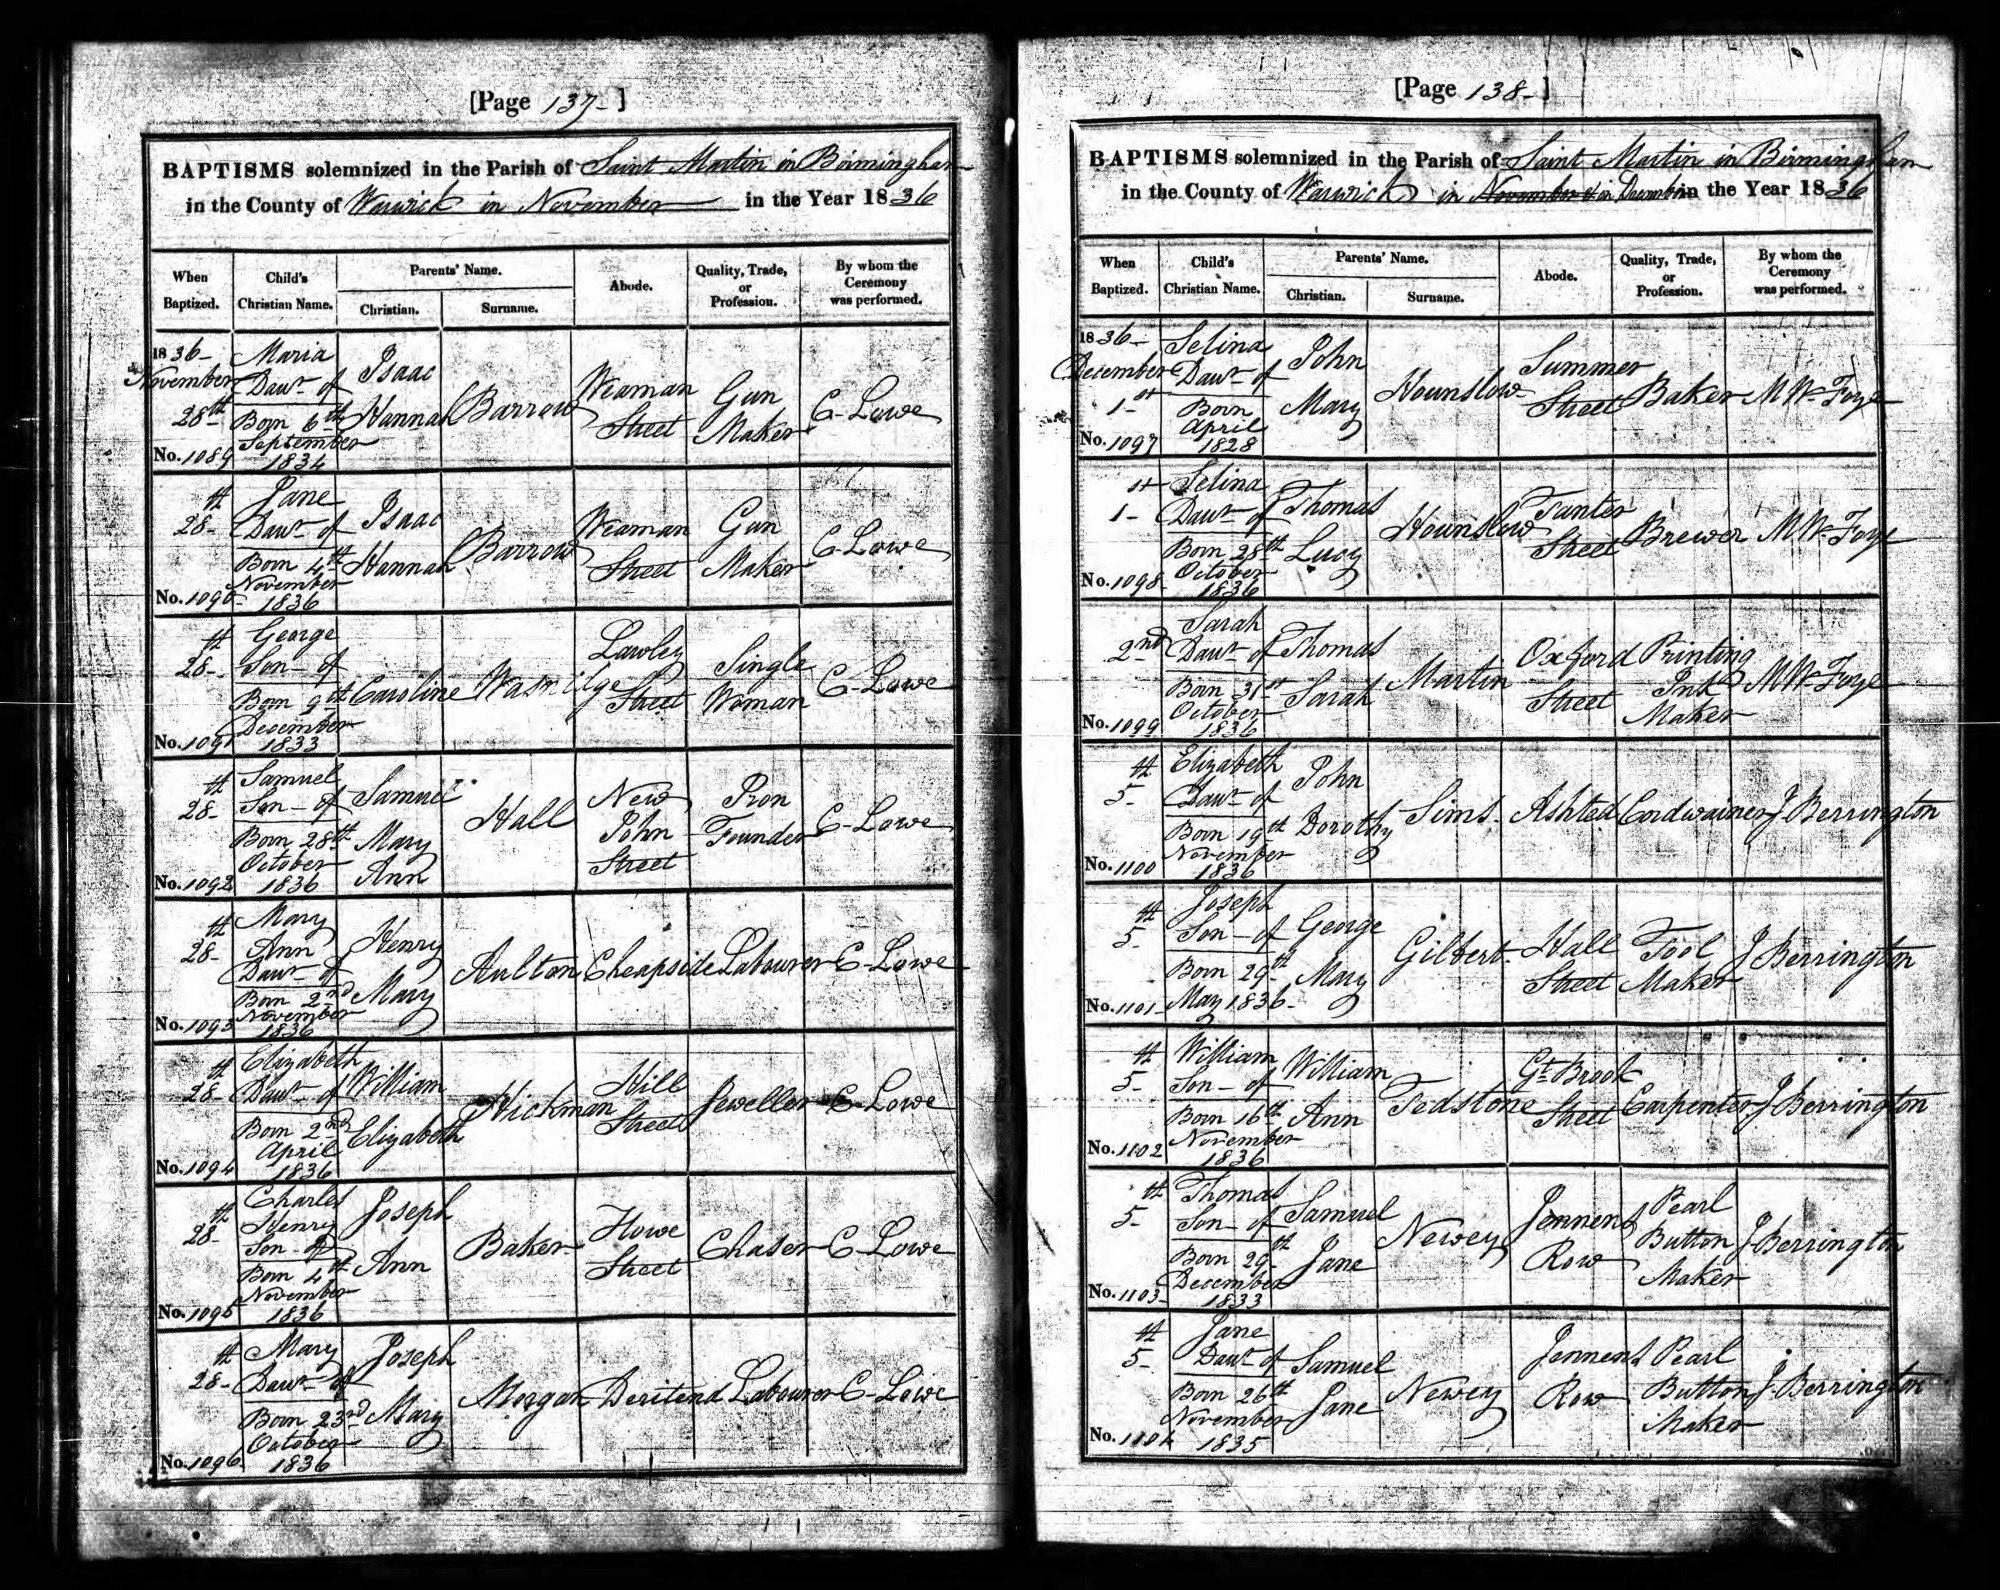 [Page 137-]
BAPTISMS solemnized in the Parish of Saint Martin in Birmingham
in the County of Warwick in November in the Year 1836
When Baptized.
Child's Christian Name.
Parents' Name.
Christian.
Surname.
Abode.
Quality, Trade, or Profession.
By whom the Ceremony was performed.
1836-
November
28th
No. 1089
Maria
Daur of
Born 6th
September
1834
Isaac
Hannah
Barrow
Weaman
Street
Gun
Maker
C-Lowe
28th
No. 1090
Jane
Daur of
Born 4th
November
1836
Isaac
Hannah
Barrow
Weaman
Street
Gun
Maker
C-Lowe
28th
No. 1091
George
Son of
Born 9th
December
1833
Caroline
Lawley
Street
Single
Woman
C-Lowe
28th
No. 1092
Samuel
Son of
Born 28th
October
1836
Samuel
Mary
Ann
Hall
New
John
Street
Iron
Founder
C-Lowe
28th
No. 1093
Mary
Ann
Daur of
Born 2nd
November
1836
Henry
Mary
Aulton
Cheapside
Labourer
C-Lowe
28th
No. 1094
Elizabeth
Daur of
Born 2nd
April
1836
William
Elizabeth
Hickman
Hill
Street
Jeweller
C-Lowe
28th
No. 1095
Charles
Henry
Son of
Born 4th
November
1836
Joseph
Ann
Baker
Howe
Street
Chaser
C-Lowe
28th
No. 1096
Mary
Daur of
Born 23rd
October
1836
Joseph
Mary
Morgan
Deritend
Labourer
C-Lowe
[Page 138-]
BAPTISMS solemnized in the Parish of Saint Martin in Birmingham
in the County of Warwick in November & in December in the Year 1836
When Baptized.
Child's Christian Name.
Parents' Name.
Christian.
Surname.
Abode.
Quality, Trade, or Profession.
By whom the Ceremony was performed.
1836-
December
1st
No. 1097
Selina
Daur of
Born
April
1828
John
Mary
Hounslow
Summer
Street
Baker
M W Foye
1st
No. 1098
Selina
Daur of
Born 28th
October
1836
Thomas
Lucy
Hounslow
Tanter
Street
Brewer
M W Foye
2nd
No. 1099
Sarah
Daur of
Born 31st
October
1836
Thomas
Sarah
Martin
Oxford
Street
Printing
Ink
Maker
M W Foye
5th
No. 1100
Elizabeth
Daur of
Born 19th
November
1836
John
Dorothy
Sims
Ashted
Cordwainer
J Berrington
5th
No. 1101
Joseph
Son of
Born 29th
May 1836
George
Mary
Gilbert
Hall
Street
Tool
Maker
J Berrington
5th
No. 1102
William
Son of
Born 16th
November
1836
William
Ann
Tedstone
Gt Brook
Street
Carpenter
J Berrington
5th
No. 1103
Thomas
Son of
Born 29th
December
1833
Samuel
Jane
Newey
Jennens
Row
Pearl
Button
Maker
J Berrington
5th
No. 1104
Jane
Daur of
Born 26th
November
1835
Samuel
Jane
Newey
Jennens
Row
Pearl
Button
Maker
J Berrington